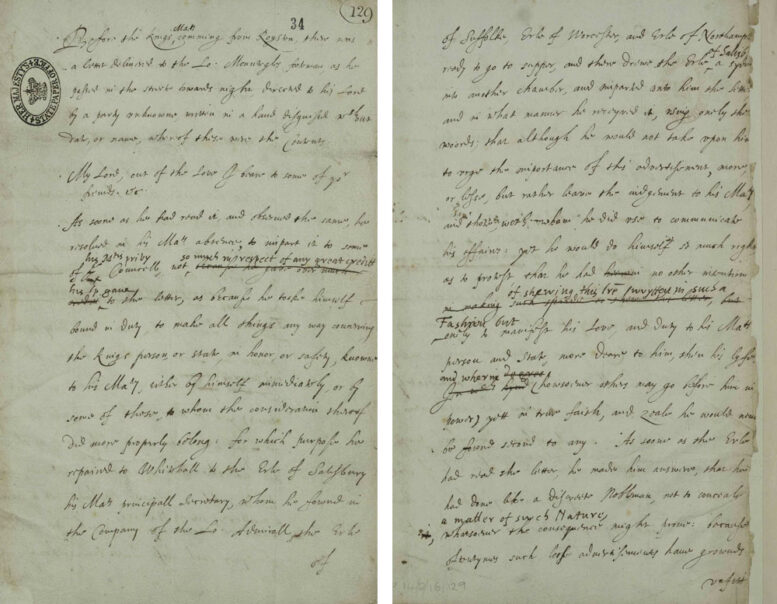 34
129
Before the Kings Matꭍ comming from Royston, there was
a letter delivered to the Lo: Mountegle footman as he
passed in the street towards night directed to his Lord
by a party unknowne written in a hand disguised without
date, or name, wherof these were the Contents.
My Lord, out of the Love I beare to some of yor
frends. &c
As soone as he had read it, and observed the same, he
resolved in his Maty absence, to impart it to some
his Mats privy so much in respect of any great creditt
of the Councell, not
his Lp gave
to the letter, as because he tooke himself
bound in duty to make all things any way concerning
the Kings person or state, in honor, or safety, knowne
to his Maty, either by himself immediately or by
some of those, to whom the consideration therof
did more properly belong: for which purpose he
repaired to Whithall to the Erle of Salisbury
his Mats principall Secretary, whom he found in
the Company of the Lo: Admirall, the Erle
of
of Suffolke, Erle of Worcester, and Erle of Northampt
ready to go to supper, and there drewe the Erle of Salsb.
into another chamber, and imparted unto him the letter
and in what manner he receyved it, using onely these
woords: that although he would not take upon him
to urge the importance of this advertisement, more
or lesse, but rather leave the iudgement to his Maty
and those with whome he did use to communicate
his affaires: yet he would do himself so much right
as to protest that he had no other intention
of shewing this lre wrytten in such a
Fashion but
onely to manifest his Love, and duty to his Maty
person and State, more deare to him, then his lyfe
and wherin
(howsoever others may go before him in
power) yett in trew faith, and zeale he would never
be found second to any. As soone as the Erle
had read the letter, he made him answere, that he
had done like a discreete Nobleman, not to conceale
a matter of such Nature,
whatsoever the consequence might prove: because
oftentymes such loose advertisements have grownds